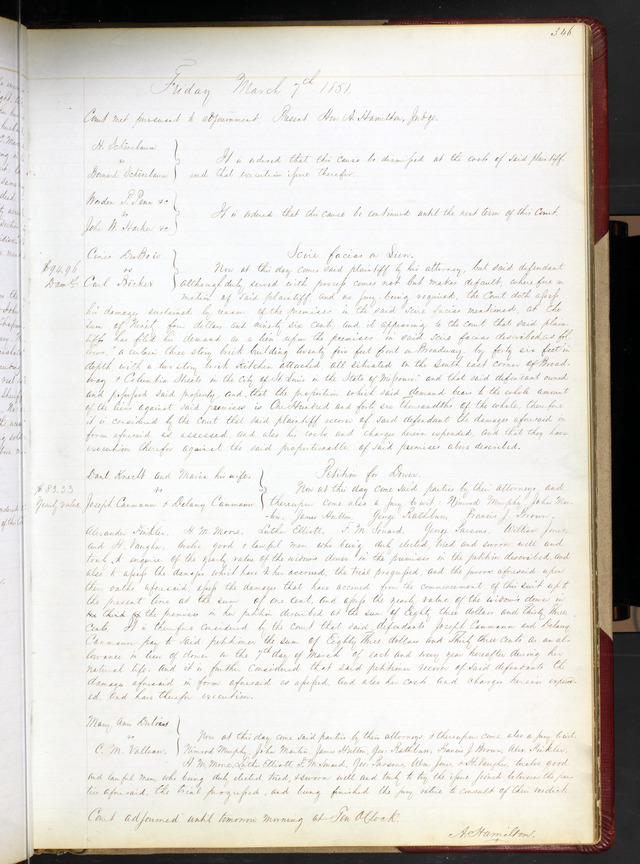 346
Friday March 7th 1851
Court met pursuant to adjournment Present Hon A. Hamilton, Judge.
H. Schonlaun
vs
Bernard Schonlaun
It is ordered that this cause be dismissed at the costs of said plaintiff
and that execution issue therefor.
vs
John W. &c
It is ordered that this cause be continued until the next term of this Court.
vs
Carl
$94.96
Dam'gs
Scire facias on Lien.
Now at this day comes said plaintiff by his attorney, but said defendant
although duly served with process comes not but makes default, wherefore on
motion of said plaintiff and no jury being required, the Court doth assess
his damages sustained by reason of the premises in the said scire facias mentioned, at the
sum of Ninety four dollars and ninety six cents, and it appearing to the Court that said plain-
tiff has filed his demand as a lien upon the premises in said scire facias described as fol-
lows. "a certain three story brick building twenty five feet front on Broadway by forty six feet in
depth with a two story brick kitchen attached all situated on the South east corner of Broad-
way & Columbia Streets in the City of St Louis in the State of Missouri" and that said defendant owned
and possessed said property, and that the proportion which said demand bears to the whole amount
of the liens against said premises is One Hundred and forty six thousandths of the whole, therefore
it is considered by the Court that said plaintiff recover of said defendant the damages aforesaid in
form aforesaid as assessed, and also his costs and charges herein expended, and that they have
execution therefor against the said proportionable of said premises above described.
Danl Knecht and Maria his wife
vs
Joseph Caumann & Delany Caumann
$83.33
Yearly value
Petition for Dower.
Now at this day come said parties by their attorneys, and
thereupon come also a jury to wit: Nimrod Murphy, John Mar-
tin, James Hutton, George Rathburn, Francis J. Brown,
Alexander Finkler, H. M. Moore, Luther Elliott, F. M. George Parsons, William Jones,
and H. Vaughn, twelve good & lawful men who being duly elected, tried and sworn well and
truly to enquire of the yearly value of the widows dower in the premises in the petition described, and
also to assess the damages which have accrued, the trial progressed, and the jurors aforesaid upon
their oaths aforesaid, assess the damages that have accrued from the commencement of this suit up to
the present time at the sum of one cent, and assess the yearly value of the widow's dower in
the premises in her petition described at the sum of Eighty three dollars and thirty three
cents. It is therefore considered by the court that said defendants Joseph Caumann and Delany
Caumann pay to said petitioner the sum of Eighty Three dollars and Thirty three cents as an al-
lowance in lieu of dower on the 7th day of March of each and every year hereafter during her
natural life. And it is further considered that said petitioner recover of said defendants the
damages aforesaid in form aforesaid as assessed, and also her costs and charges herein expend-
ed, and have therefor execution.
Mary Ann
vs
C. M. Valleau.
Now at this day come said parties by their attorneys & thereupon come also a jury to wit,
Nimrod Murphy, John Martin, James Hutton, Geo. Rathburn, Francis J. Brown, Alex. Finkler,
H. M. Moore, Luther Elliott, F. M. Geo. Parsons, Wm. Jones & H. Vaughn, twelve good
and lawful men, who being duly elected, tried, & sworn well and truly to try the issue joined between the par-
ties aforesaid, the trial progressed, and being finished the jury retire to consult of their verdict.
Court adjourned until tomorrow morning at Ten O'Clock.
A. Hamilton.